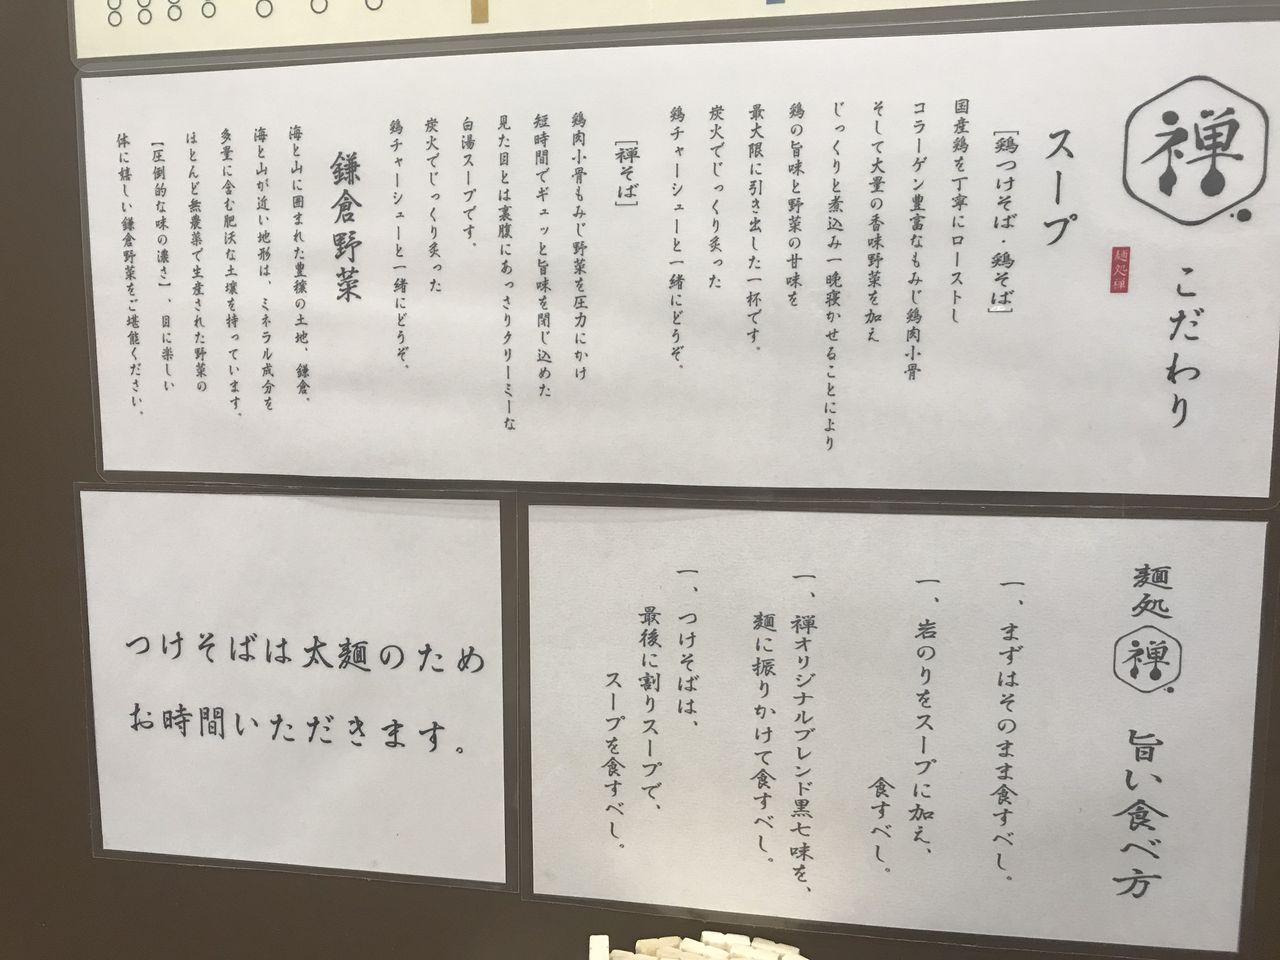 禅 こだわり
麺処禅
スープ
［鶏つけそば・鶏そば］
国産鶏を丁寧にローストし
コラーゲン豊富なもみじ鶏肉小骨
そして大量の香味野菜を加え
じっくりと煮込み一晩寝かせることにより
鶏の旨味と野菜の甘味を
最大限に引き出した一杯です。
炭火でじっくり炙った
鶏チャーシューと一緒にどうぞ。
［禅そば］
鶏肉小骨もみじ野菜を圧力にかけ
短時間でギュッと旨味を閉じ込めた
見た目とは裏腹にあっさりクリーミーな
白湯スープです。
炭火でじっくり炙った
鶏チャーシューと一緒にどうぞ。
鎌倉野菜
海と山に囲まれた豊穣の土地、鎌倉。
海と山が近い地形は、ミネラル成分を
多量に含む肥沃な土壌を持っています。
ほとんど無農薬で生産された野菜の
［圧倒的な味の濃さ］、目に楽しい
体に嬉しい鎌倉野菜をご堪能ください。
麺処 禅 旨い食べ方
一、まずはそのまま食すべし。
一、岩のりをスープに加え、
食すべし。
一、禅オリジナルブレンド黒七味を、
麺に振りかけて食すべし。
一、つけそばは、
最後に割りスープで、
スープを食すべし。
つけそばは太麺のため
お時間いただきます。